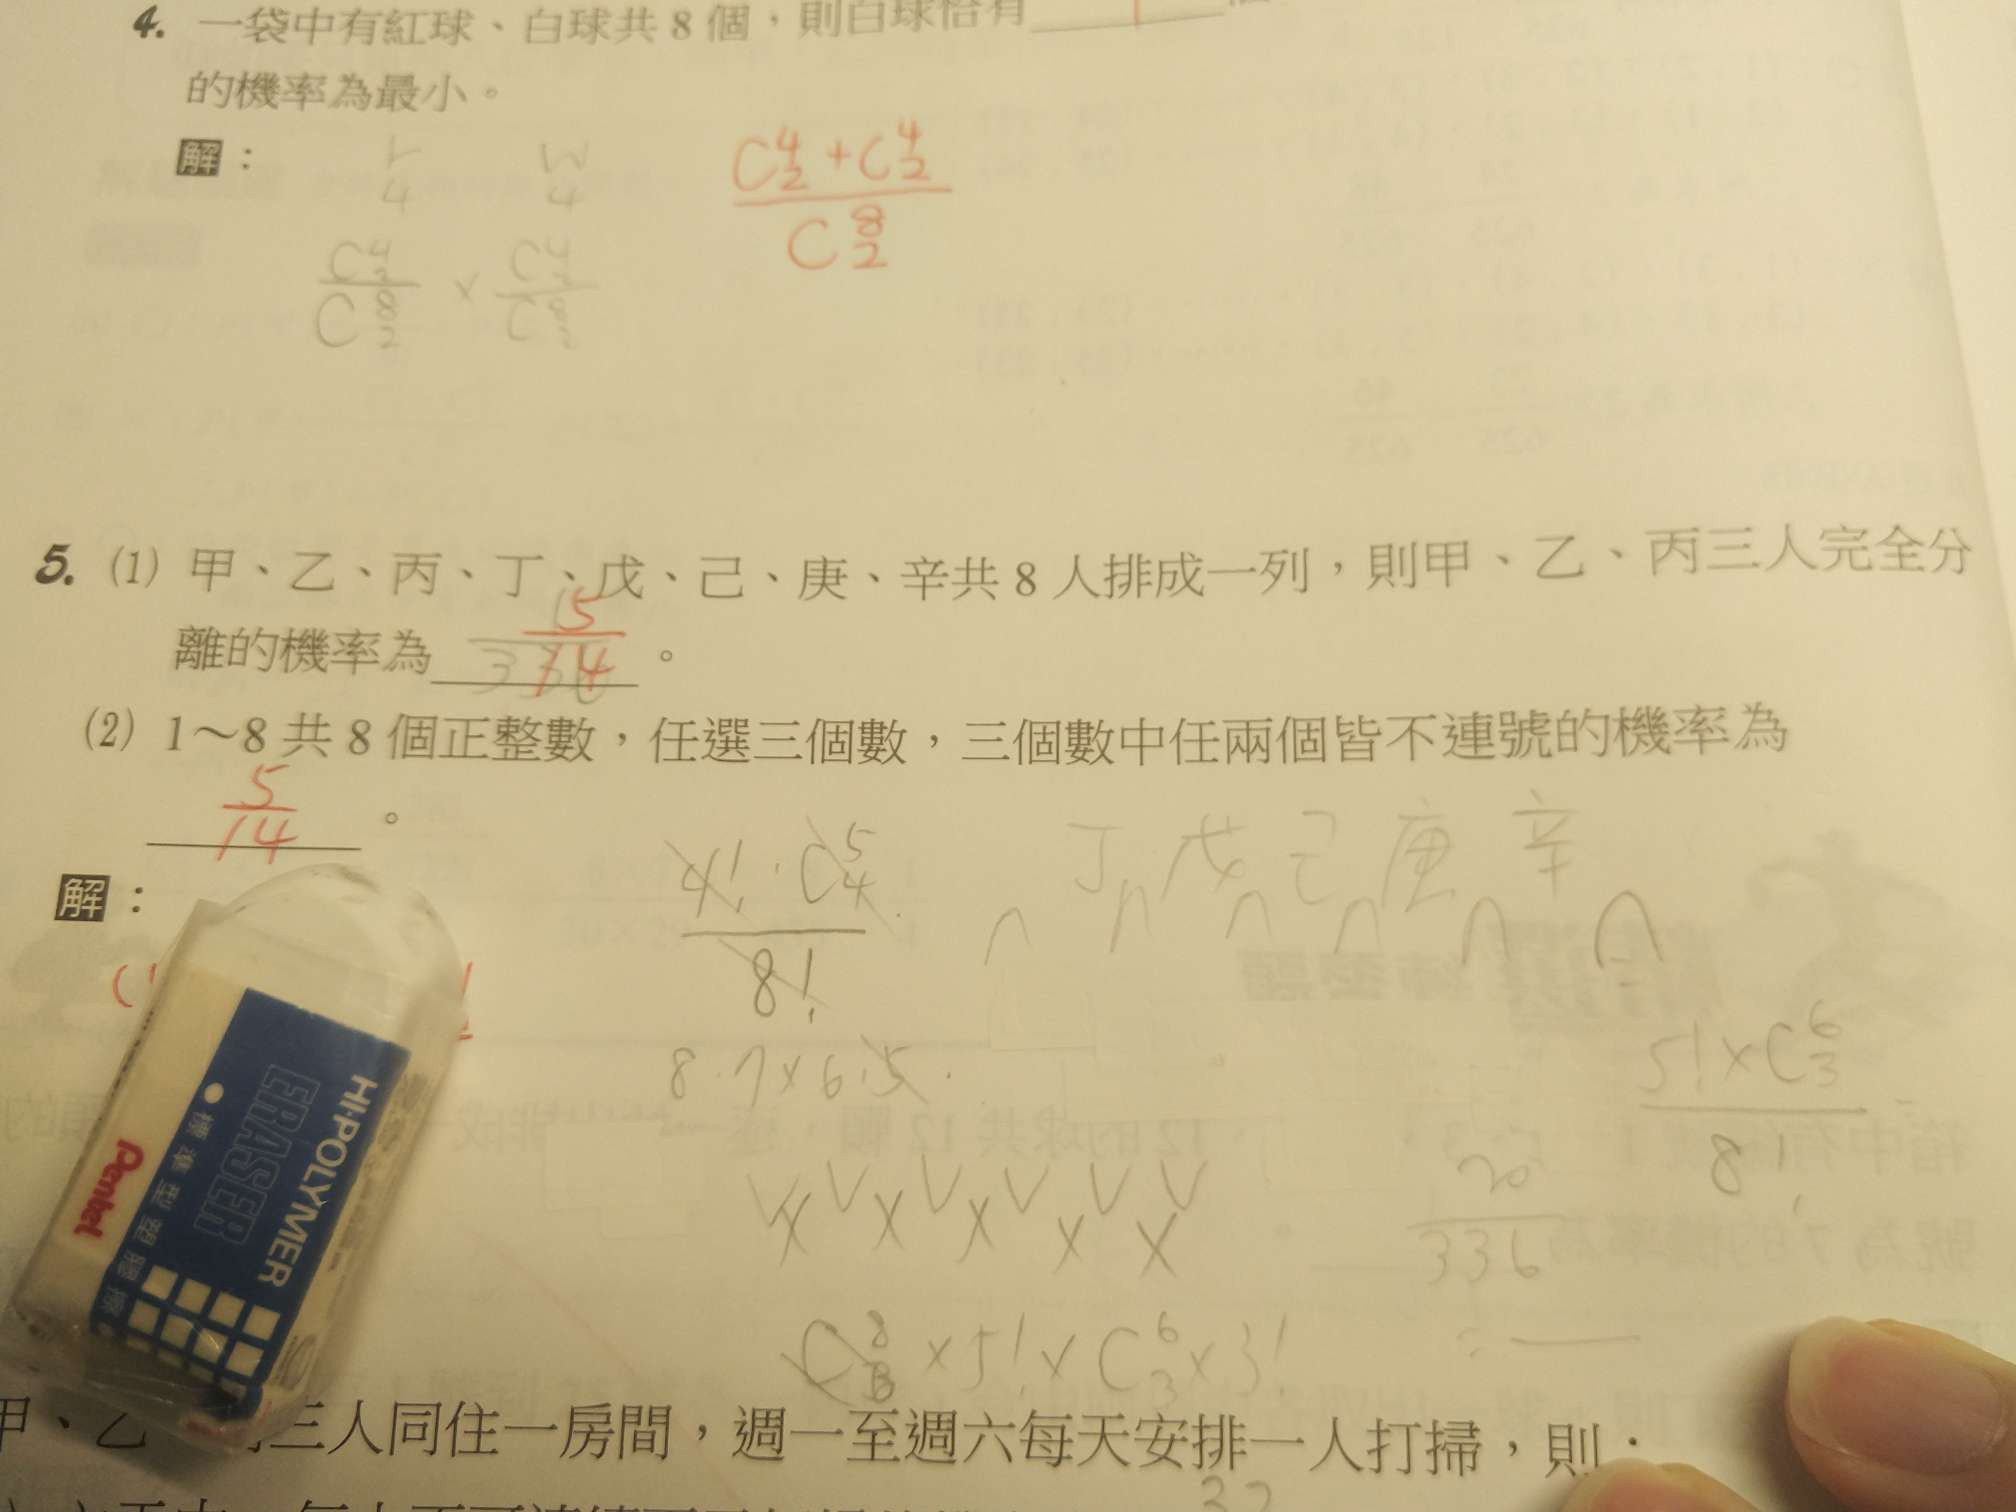 4. 一袋中有紅球、白球共 8 個，則白球恰有
的機率為最小。
解：
C4 2 + C4 2
C8 2
C8 2 ×
5. (1) 甲、乙、丙、丁、戊、己、庚、辛共 8 人排成一列，則甲、乙、丙三人完全分
離的機率為 5/14 。
(2) 1～8 共 8 個正整數，任選三個數，三個數中任兩個皆不連號的機率為
5/14 。
解：
4! · C5 4
8!
丁 戊 己 庚 辛
8 · 7 × 6 · 5 ·
5! × C6 3
8!
20
336
C8 3 × 5! × C6 3 × 3!
HI-POLYMER
ERASER
標準型塑膠擦
Pentel
甲、乙 三人同住一房間，週一至週六每天安排一人打掃，則：